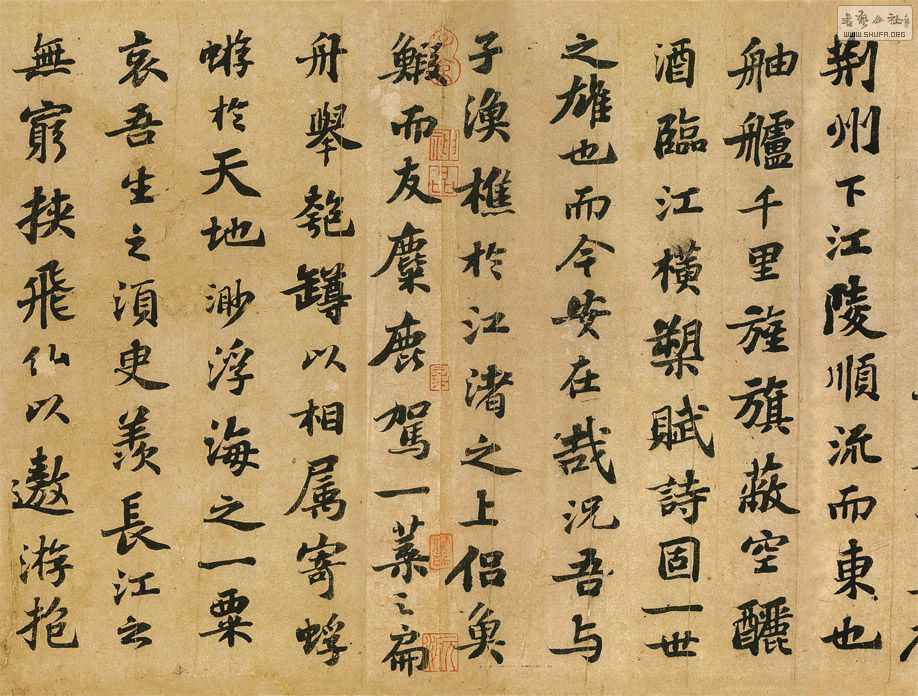 荆州下江陵順流而東也
舳艫千里旌旗蔽空釃
酒臨江橫槊賦詩固一世
之雄也而今安在哉況吾與
子漁樵於江渚之上侶魚
鰕而友麋鹿駕一葉之扁
舟舉匏罇以相屬寄蜉
蝣於天地渺浮海之一粟
哀吾生之須臾羨長江之
無窮挾飛仙以遨游抱
書藝公社
WWW.SHUFA.ORG